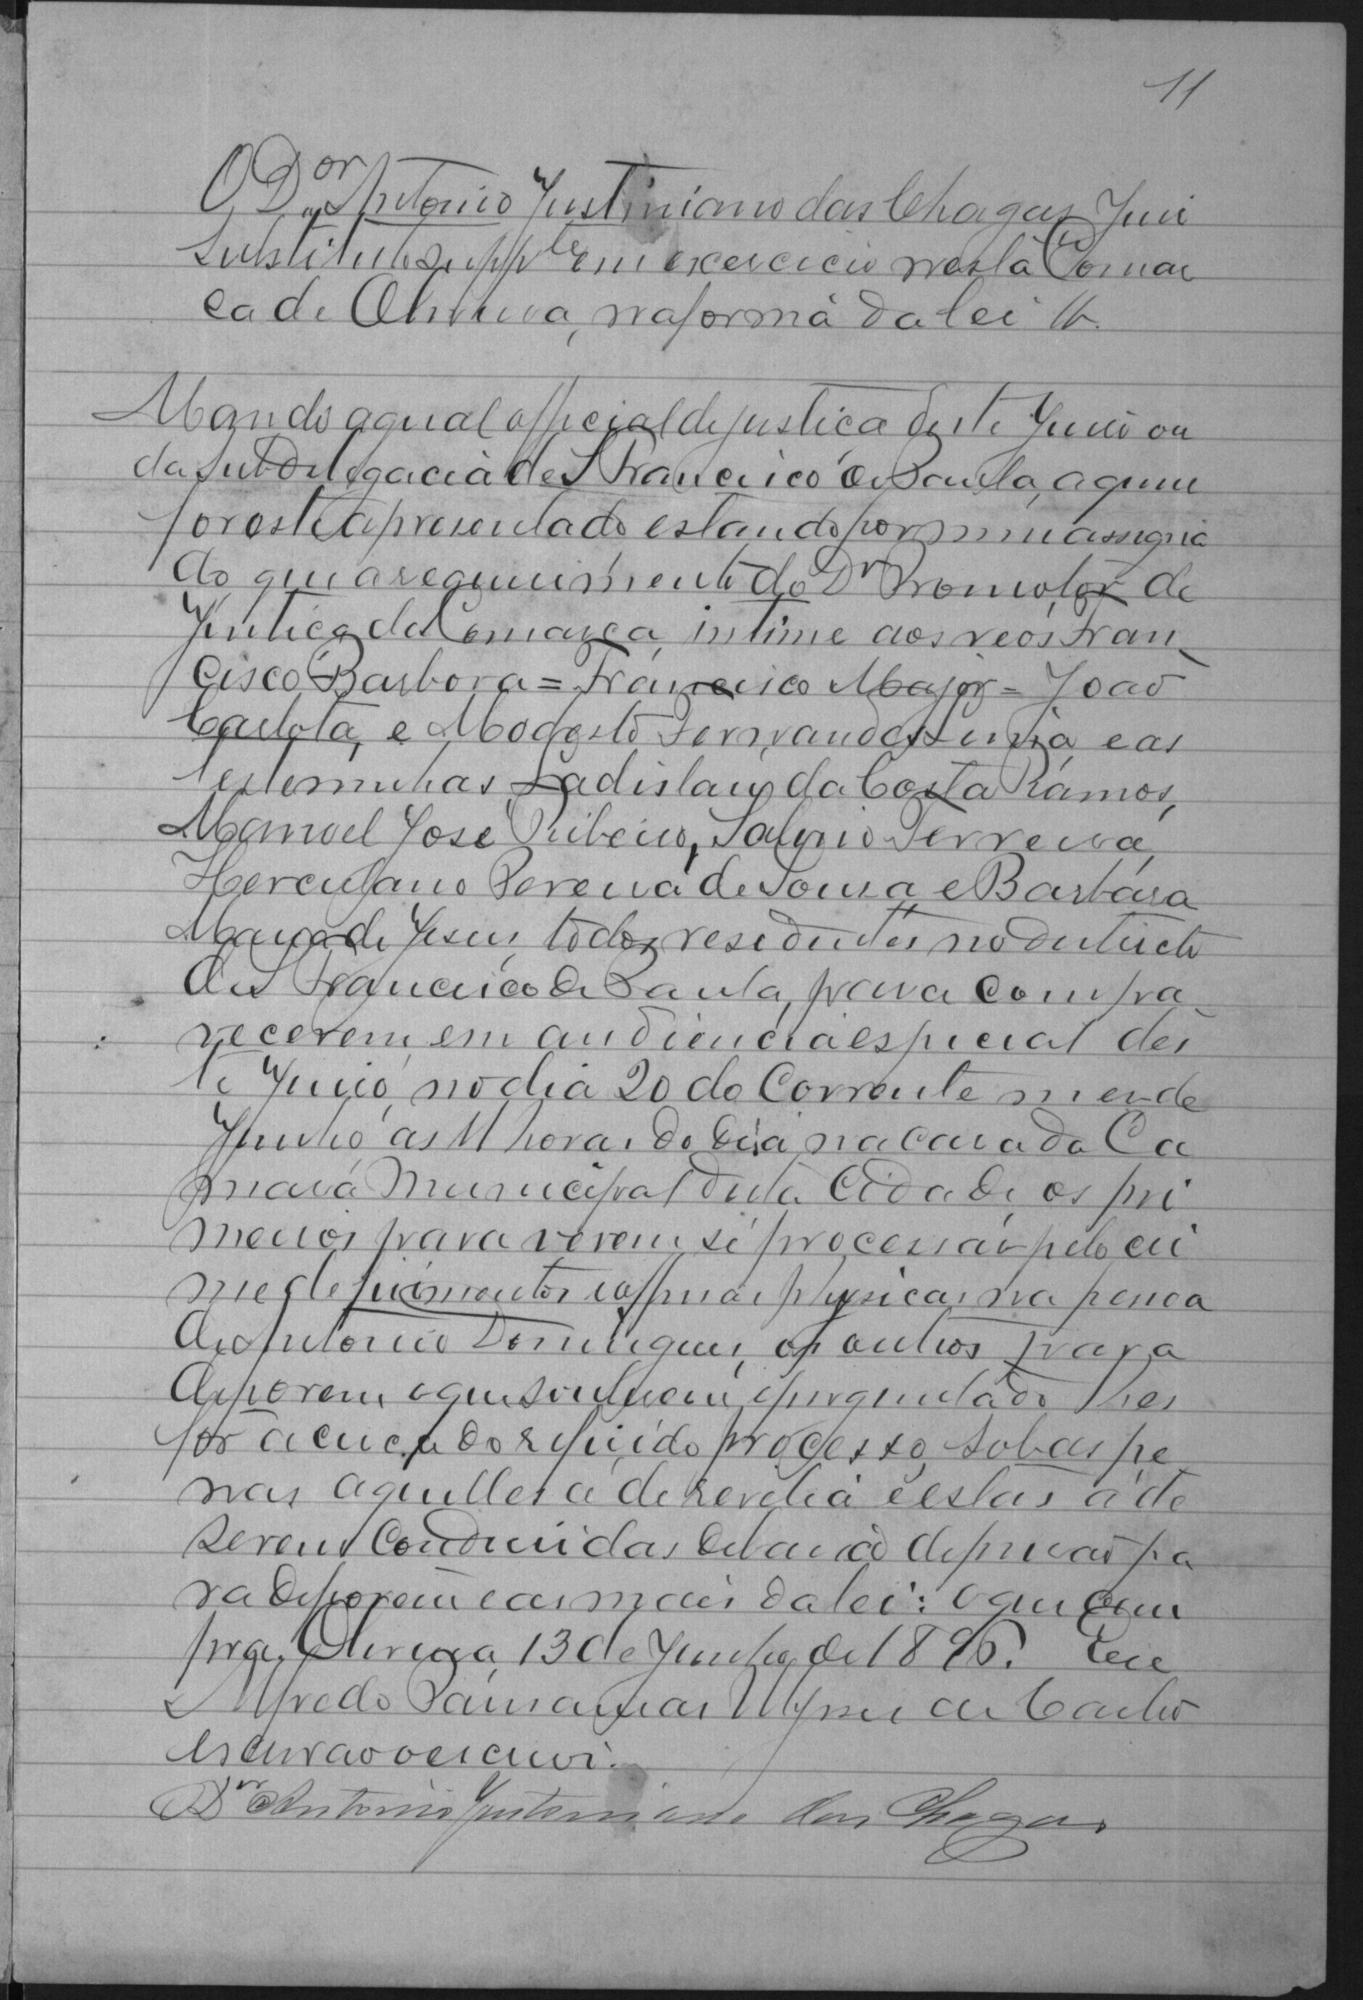 11
O Dor Antonio Justiniano das Chagas Juis
Substituto suppte em exercicio nesta Comar
ca de Oliveira, na forma da lei &.
Mando a qual official de justiça deste Juiso ou
da subdelegacia de S Francisco de Paula, a quem
for este apresentado estando por mim assigna
do que a requerimento do Dr Promotor de
Justiça da Comarca, intime aos reos Fran
cisco Barbosa = Francisco Major = João
Carlota, e Modesto Fernandes e as
testemunhas Ladislau da Costa Ramos,
Manoel José Ribeiro, Ferreira,
Herculano Pereira de Sousa e Barbara
Maria de Jesus, todos residentes no districto
de S Francisco de Paula, para compa
recerem em audiencia especial des
te Juiso, no dia 20 do Corrente mes de
Junho as 11 horas do dia na casa da Ca
mara Municipal desta Cidade, os pri
meiros para verem se processar pelo cri
me de ferimentos e offensas physicas na pessoa
de Antonio Domingues, os outros para
deporem o que souberem e perguntado lhes
for a cerca do referido processo, sob as pe
nas aquelles a de revelia e estas a de
serem Condusidas debaixo de prisão pa
ra deporem e as mais da lei: o que cum
pra. Oliveira, 13 de Junho de 1896. Eu
Alfredo de Castro
escrivão o escrevi.
Dr Antonio Justiniano das Chagas